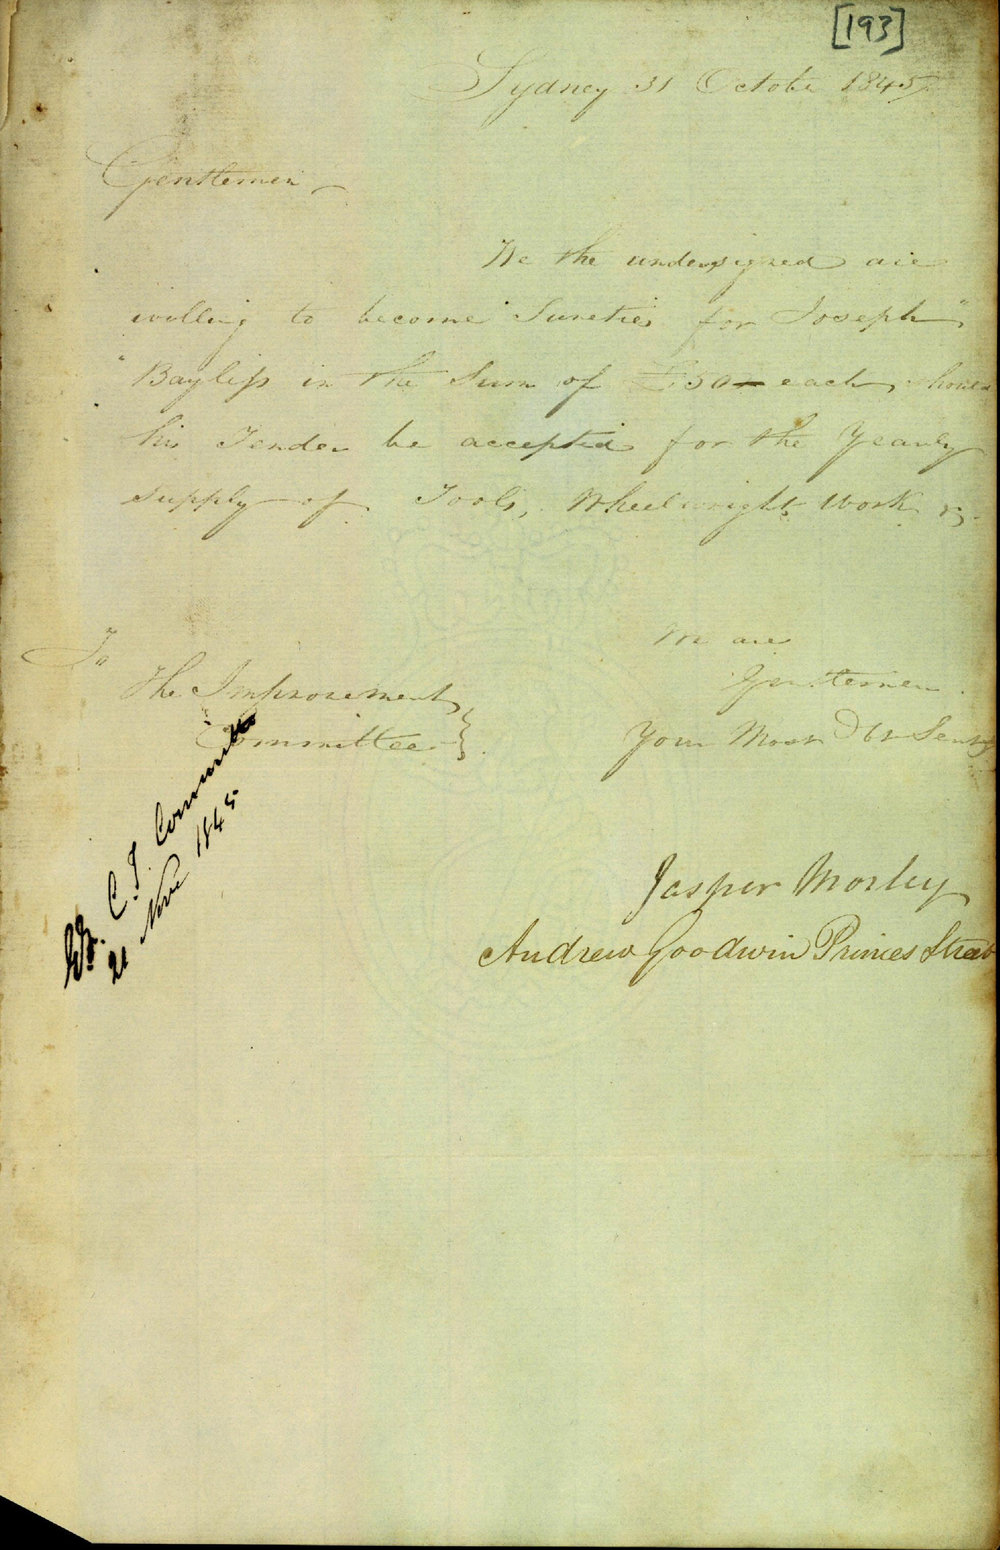 [193]
Sydney 31 October 1845
Gentlemen
We the undersigned are
willing to become Sureties for "Joseph"
"Bayliss in the Sum of £50 each, should
his Tender be accepted for the Yearly
Supply of Tools, Wheelwrights Work &c
To
The Improvement
Committee
We are
Gentlemen
Your Most Obt Servts
Jasper Morley
Andrew Goodwin Princes Street
C. I. Committee
21 Novr 1845